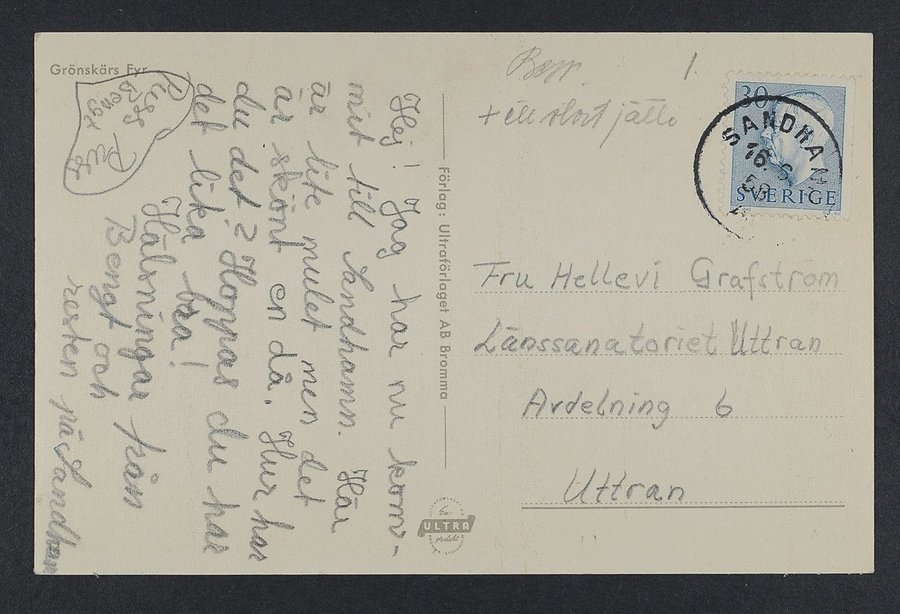 Grönskärs Fyr
Hej! Jag har nu kom-
mit till Sandhamn. Här
är lite mulet men det
är skönt en då. Hur har
du det? Hoppas du har
det lika bra!
Hälsningar från
Bengt och
resten på Sandham
Bengt
Förlag: Ultraförlaget AB Bromma
En
ULTRA
produkt
1.
+ ett stort
30
SVERIGE
SANDHAM
16.
Fru Hellevi Grafström
Länssanatoriet Uttran
Avdelning 6
Uttran